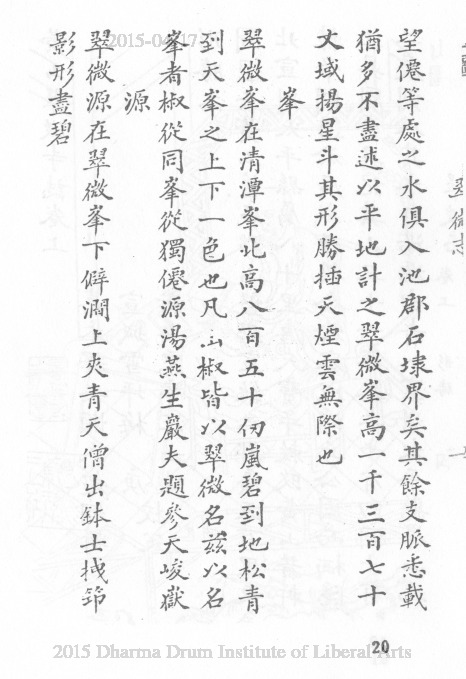 望僊等處之水俱入池郡石埭界矣其餘支脈悉載
猶多不盡述以平地計之翠微峯高一千三百七十
丈域揚星斗其形勝插天煙雲無際也
峯
翠微峯在清潭峯北高八百五十仞嵐碧到地松青
到天峯之上下一色也凡山椒皆以翠微名茲以名
峯者椒從同峯從獨僊源湯燕生巖夫題參天峻嶽
源
翠微源在翠微峯下僻澗上夾青天僧出鉢士拽筇
影形盡碧
翠微志
20
2015 Dharma Drum Institute of Liberal Arts